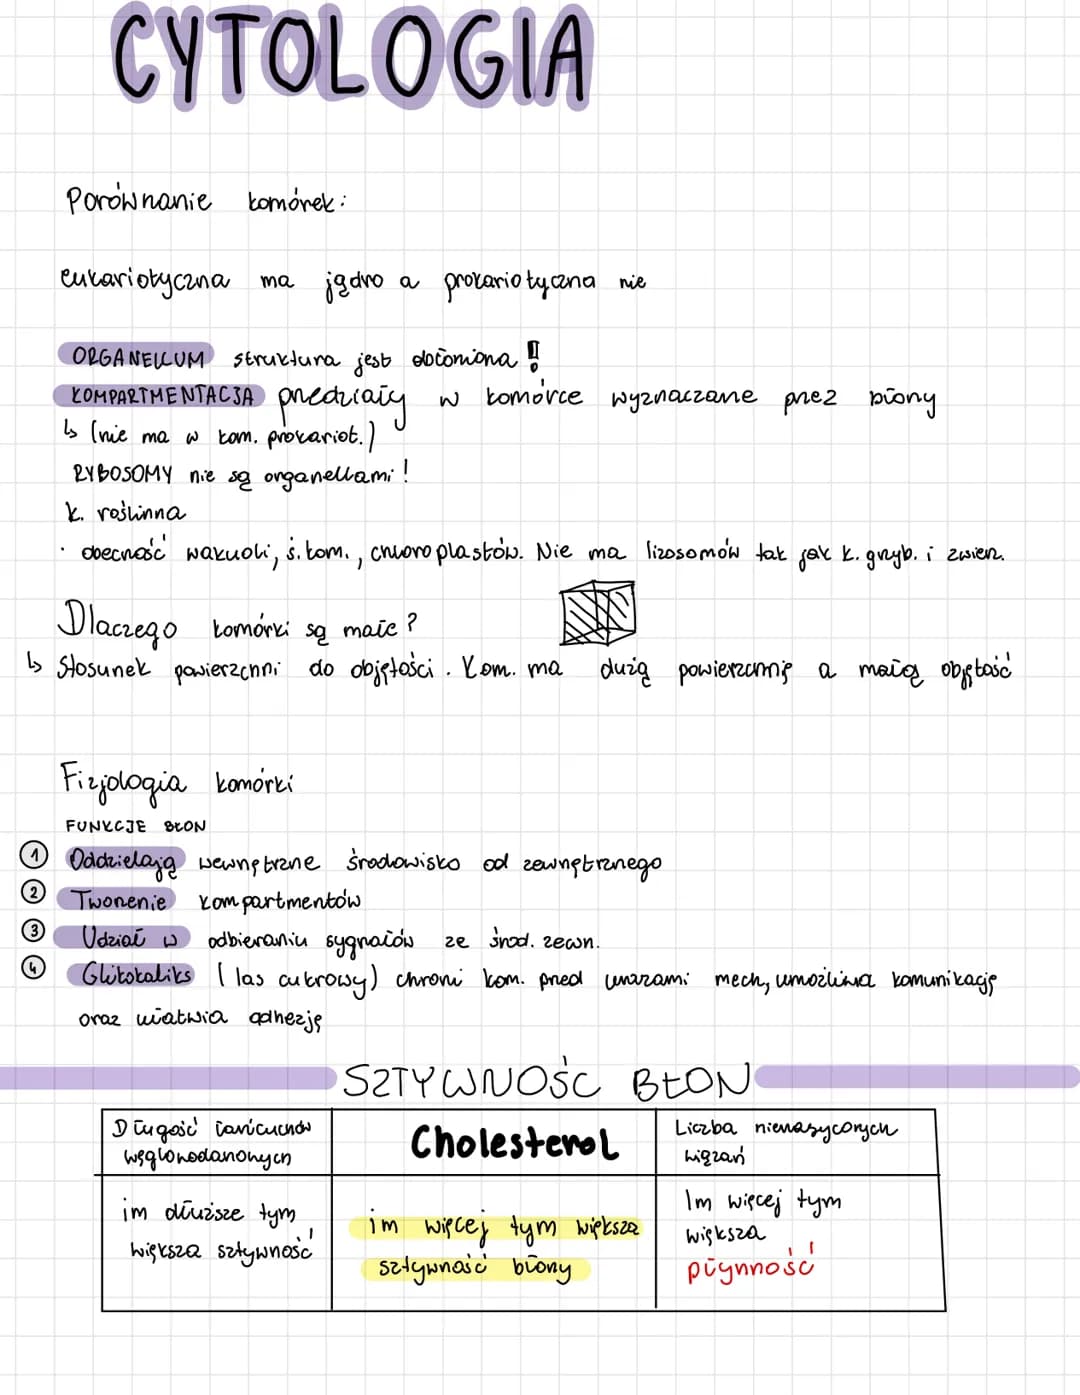 CYTOLOGIA
Porównanie komórek:
eukariotyczna ma jądro a prokariotyczna nie
ORGANELLUM struktura jest obłoniona!
KOMPARTMENTACJA przedziały w komórce wyznaczane przez błony
↳ (nie ma w kom. prokariot.)
RYBOSOMY nie są organellami!
k. roślinna
· obecność wakuoli, ś. kom., chloroplastów. Nie ma lizosomów tak jak k. grzyb. i zwierz.
Dlaczego komórki są małe?
↳ Stosunek powierzchni do objętości. Kom. ma dużą powierzchnię a małą objętość
Fizjologia komórki
FUNKCJE BŁON
1 Oddzielają wewnętrzne środowisko od zewnętrznego
2 Tworzenie kompartmentów
3 Udział w odbieraniu sygnałów ze środ. zewn.
4 Glikokaliks (las cukrowy) chroni kom. przed urazami mech, umożliwia komunikację
oraz ułatwia adhezję
SZTYWNOŚĆ BŁON
Długość łańcuchów
węglowodanowych
Cholesterol
Liczba nienasyconych
wiązań
im dłuższe tym
większa sztywność
im więcej tym większa
sztywność błony
Im więcej tym
większa
płynność